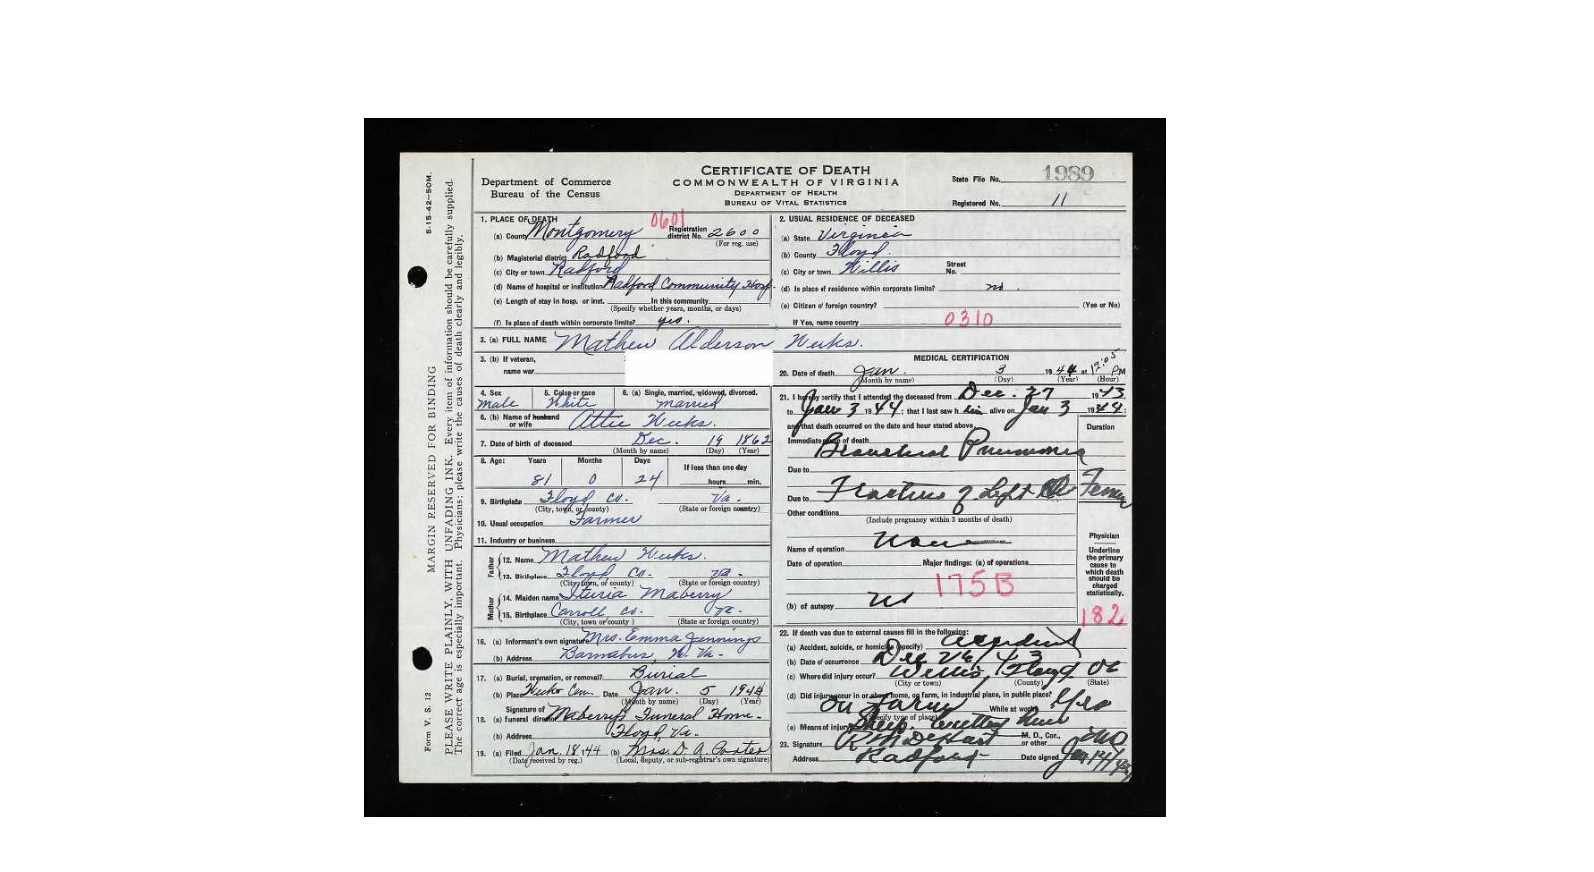 CERTIFICATE OF DEATH
COMMONWEALTH OF VIRGINIA
DEPARTMENT OF HEALTH
BUREAU OF VITAL STATISTICS
Department of Commerce
Bureau of the Census
State File No. 1989
Registered No. 11
5-15-42-50M.
MARGIN RESERVED FOR BINDING
PLEASE WRITE PLAINLY, WITH UNFADING INK. Every item of information should be carefully supplied.
The correct age is especially important. Physicians: please write the causes of death clearly and legibly.
Form V. S. 12
1. PLACE OF DEATH 0601
(a) County Montgomery Registration district No. 2600
(For reg. use)
(b) Magisterial district Radford
(c) City or town Radford
(d) Name of hospital or institution Radford Community Hosp.
(e) Length of stay in hosp. or inst. In this community
(Specify whether years, months, or days)
(f) Is place of death within corporate limits? yes.
2. USUAL RESIDENCE OF DECEASED
(a) State Virginia
(b) County Floyd.
(c) City or town Willis Street No.
(d) Is place of residence within corporate limits? no.
(e) Citizen of foreign country? (Yes or No)
If Yes, name country 0310
3. (a) FULL NAME Mathew Alderson Weeks.
3. (b) If veteran,
name war
4. Sex 5. Color or race 6. (a) Single, married, widowed, divorced.
Male White married
6. (b) Name of husband
or wife Attie Weeks.
7. Date of birth of deceased Dec. 19 1862
(Month by name) (Day) (Year)
8. Age: Years Months Days If less than one day
81 0 24 hours min.
9. Birthplace Floyd Co. Va.
(City, town, or county) (State or foreign country)
10. Usual occupation Farmer
11. Industry or business
Father
12. Name Mathew Weeks.
13. Birthplace Floyd Co. Va.
(City, town, or county) (State or foreign country)
Mother
14. Maiden name Maberry
15. Birthplace Carroll Co. Va.
(City, town or county) (State or foreign country)
16. (a) Informant's own signature Mrs. Emma Jennings
(b) Address Barnabus, W. Va.
17. (a) Burial, cremation, or removal? Burial
(b) Place Weeks Cem. Date Jan. 5 1944
(Month by name) (Day) (Year)
Signature of
18. (a) funeral director Maberry's Funeral Home
(b) Address Floyd, Va.
19. (a) Filed Jan. 18, 44 (b) Mrs. D. A. Porter
(Date received by reg.) (Local, deputy, or sub-registrar's own signature)
MEDICAL CERTIFICATION
20. Date of death Jan. 3 1944 at 12:05 PM
(Month by name) (Day) (Year) (Hour)
21. I hereby certify that I attended the deceased from Dec. 27 1943
to Jan 3 1944; that I last saw him alive on Jan 3 1944;
and that death occurred on the date and hour stated above. Duration
Immediate cause of death
Bronchial Pneumonia
Due to
Due to Fracture of Left Femur
Other conditions
(Include pregnancy within 3 months of death)
Name of operation None
Date of operation Major findings: (a) of operations
175B
(b) of autopsy
Physician
Underline
the primary
cause to
which death
should be
charged
statistically.
182
22. If death was due to external causes fill in the following:
(a) Accident, suicide, or homicide (specify) Accident
(b) Date of occurrence Dec 26, 43
(c) Where did injury occur? Willis, Floyd
(City or town) (County) (State)
(d) Did injury occur in or about home, on farm, in industrial place, in public place?
on Farm While at work? Yes
(Specify type of place)
(e) Means of injury Sheep
23. Signature R M DeHart M. D., Cor., or other
Address Radford Date signed Jan 14/44